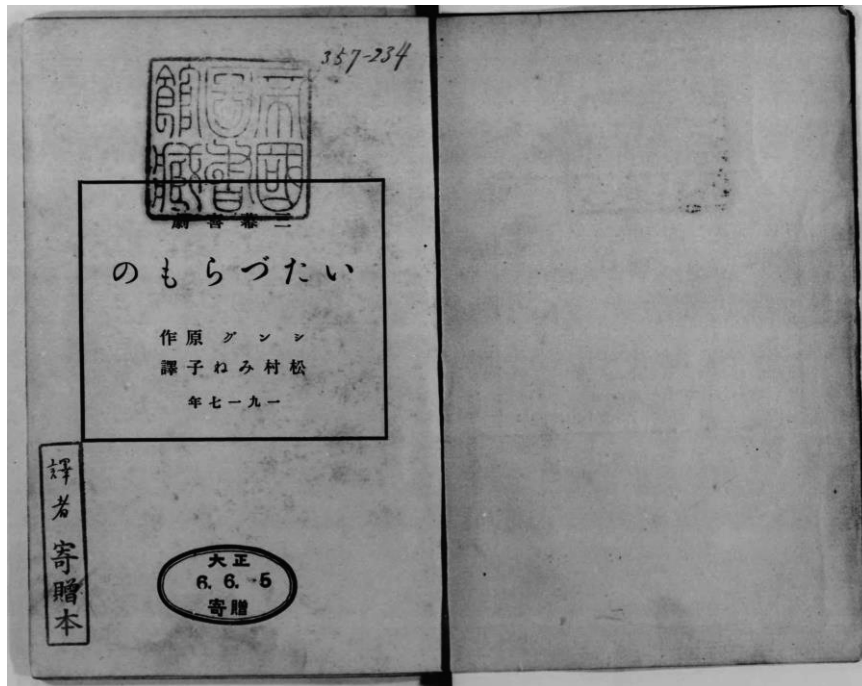 357-234
帝國圖書館藏
三幕喜劇
いたづらもの
シング原作
松村みね子譯
一九一七年
譯者寄贈本
大正
6. 6. 5
寄贈